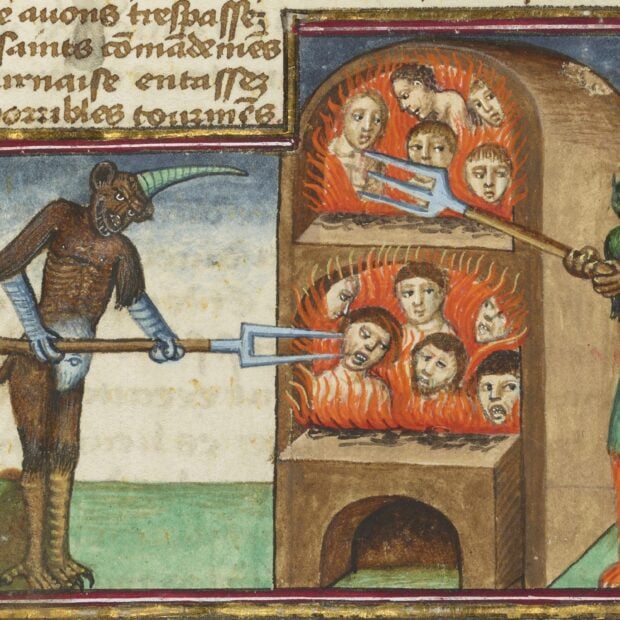 e auons trespassez
saints cõmãdemẽs
urnaise entassez
horribles tourmẽs